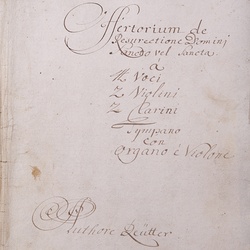 Offertorium de
Resurrectione Domini
Modo vel Sancta
á
4. Voci
2 Violini
2 Clarini
Tympano
con
Organo è Violone
Authore Reütter